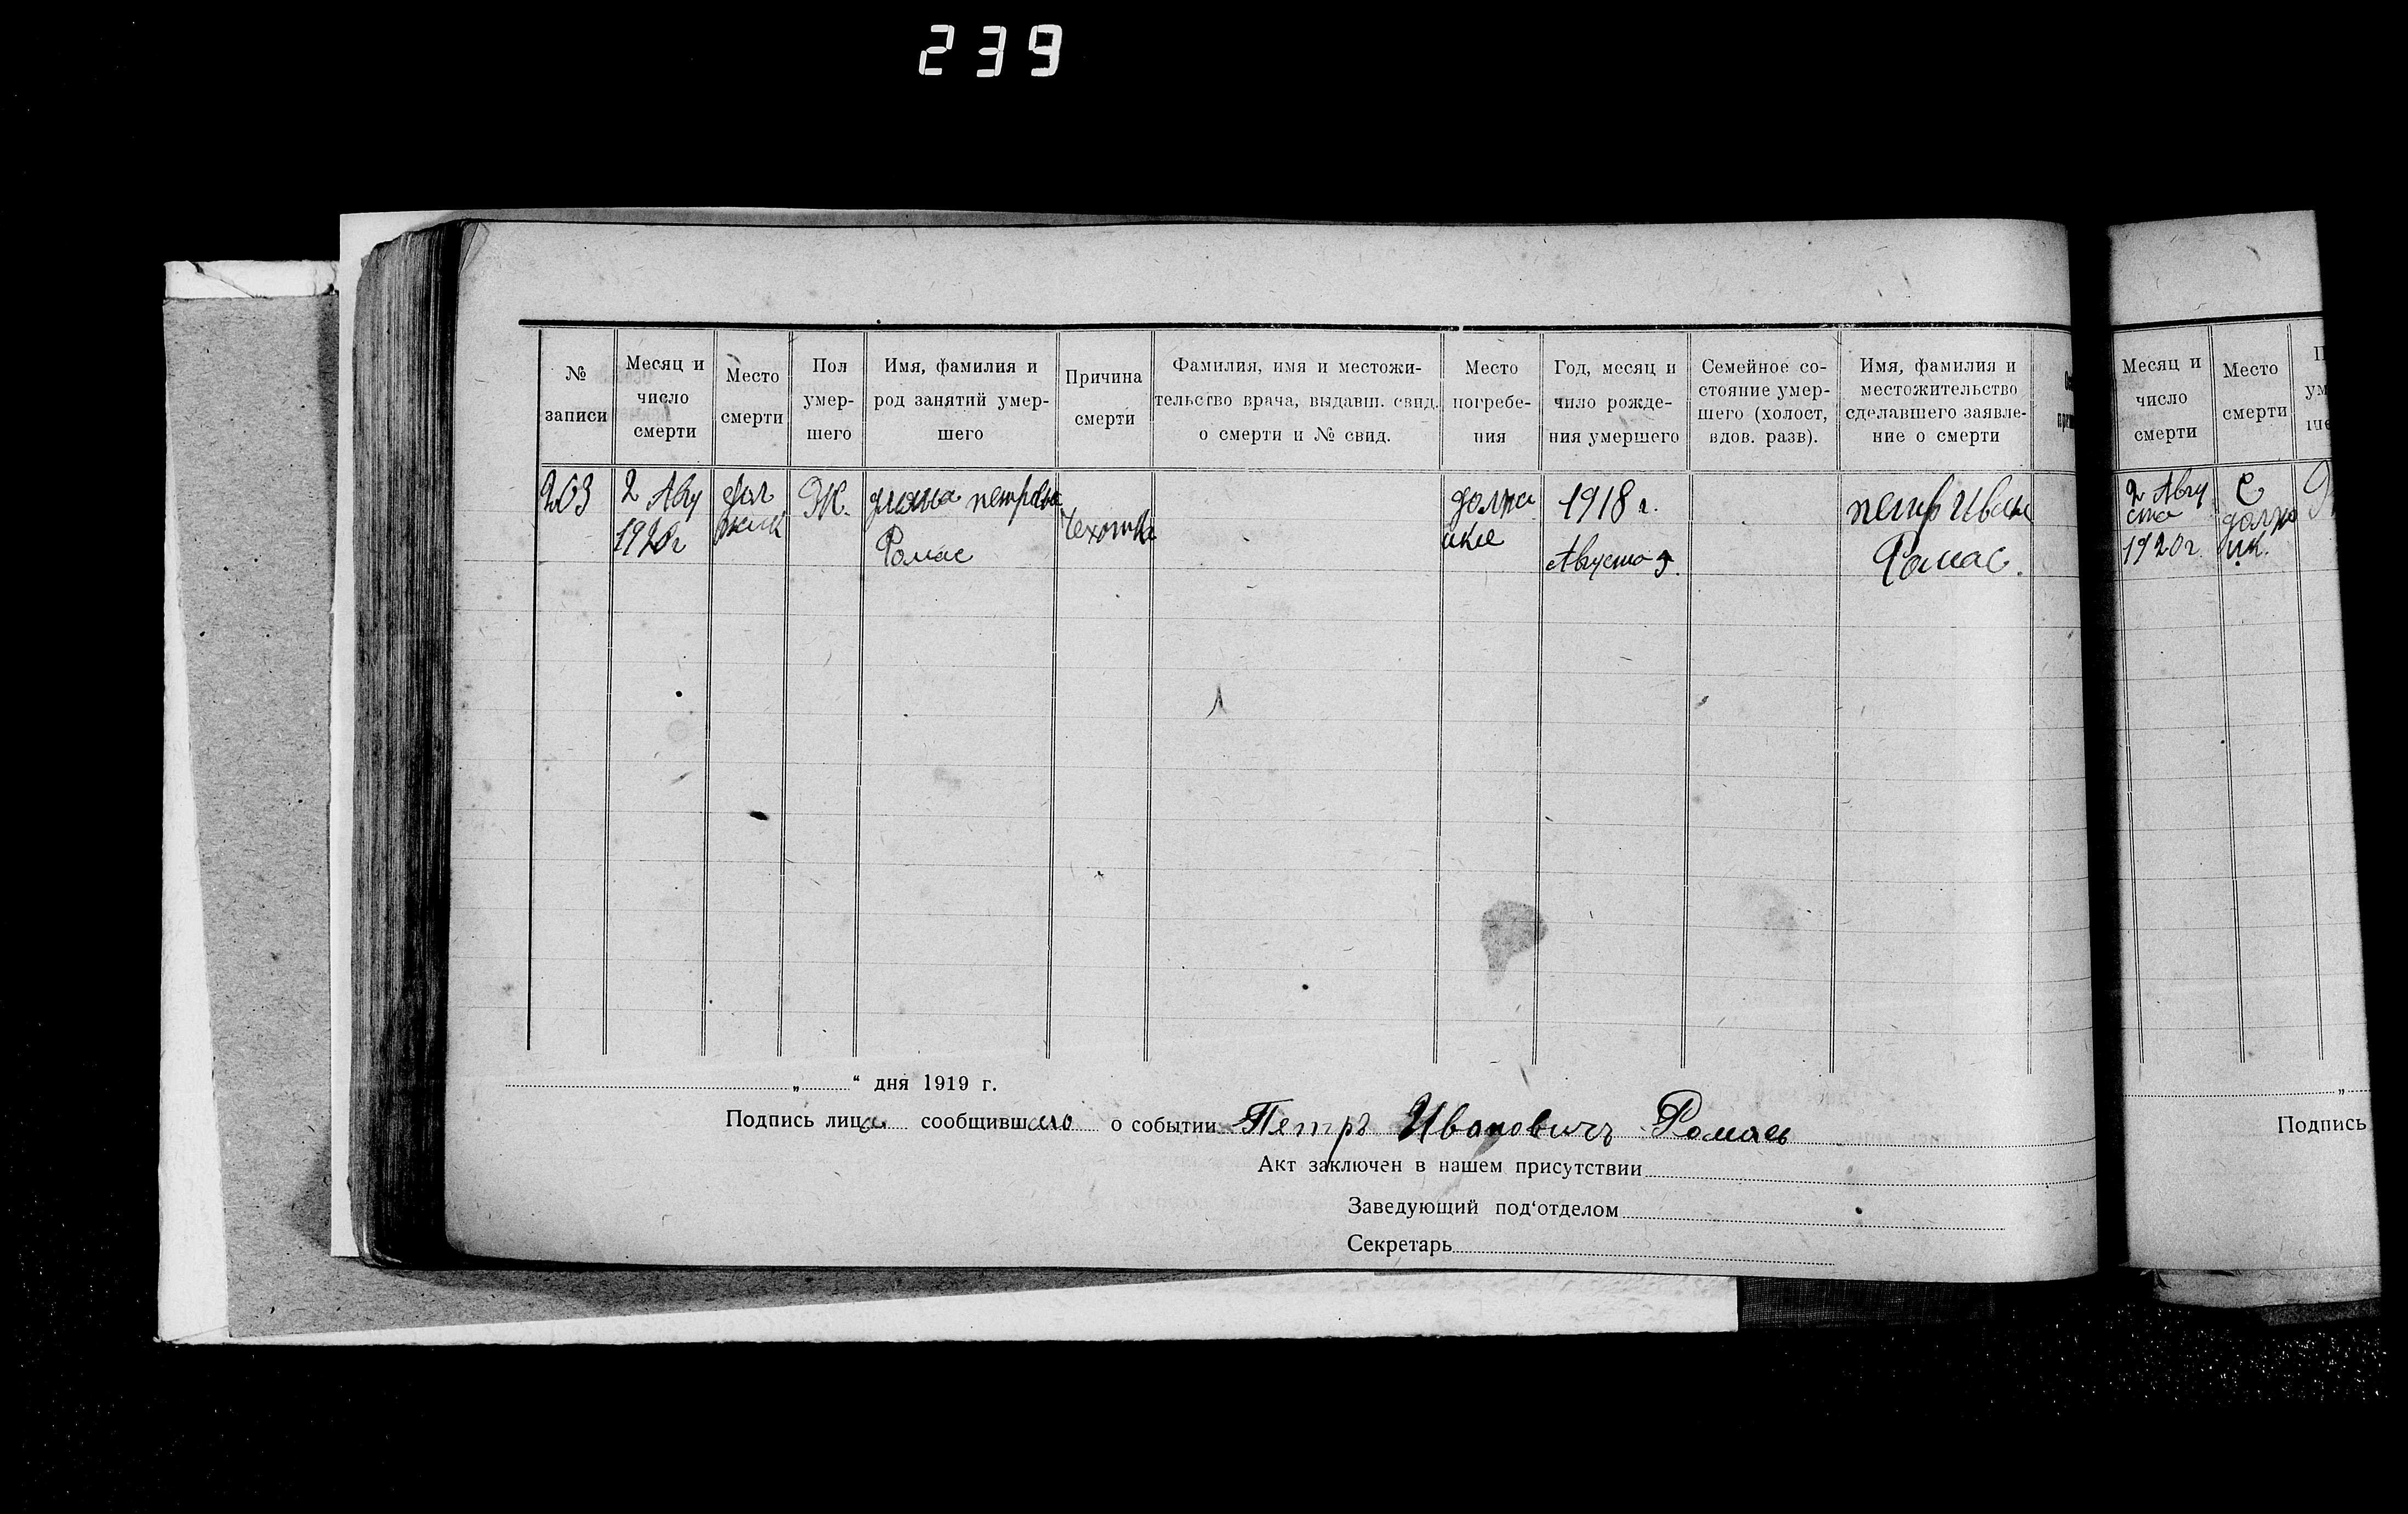 239
№ записи
Месяц и число смерти
Место смерти
Пол умер-шего
Имя, фамилия и род занятий умер-шего
Причина смерти
Фамилия, имя и местожи-тельство врача, выдавш. свид. о смерти и № свид.
Место погребе-ния
Год, месяц и чило рожде-ния умершего
Семейное со-стояние умер-шего (холост, вдов. разв).
Имя, фамилия и местожительство сделавшего заявле-ние о смерти
203
2 Авгу
1920 г
Ж.
петрова
Ромас
Чехотка
должи
1918 г.
Августа
петр Иван
Ромас.
„ “ дня 1919 г.
Подпись лица сообщившаго о событии Петръ Ивановичъ Ромась
Акт заключен в нашем присутствии
Заведующий под‘отделом
Секретарь
Месяц и число смерти
Место смерти
2 Авгу
ста
1920 г.
С
Подпись